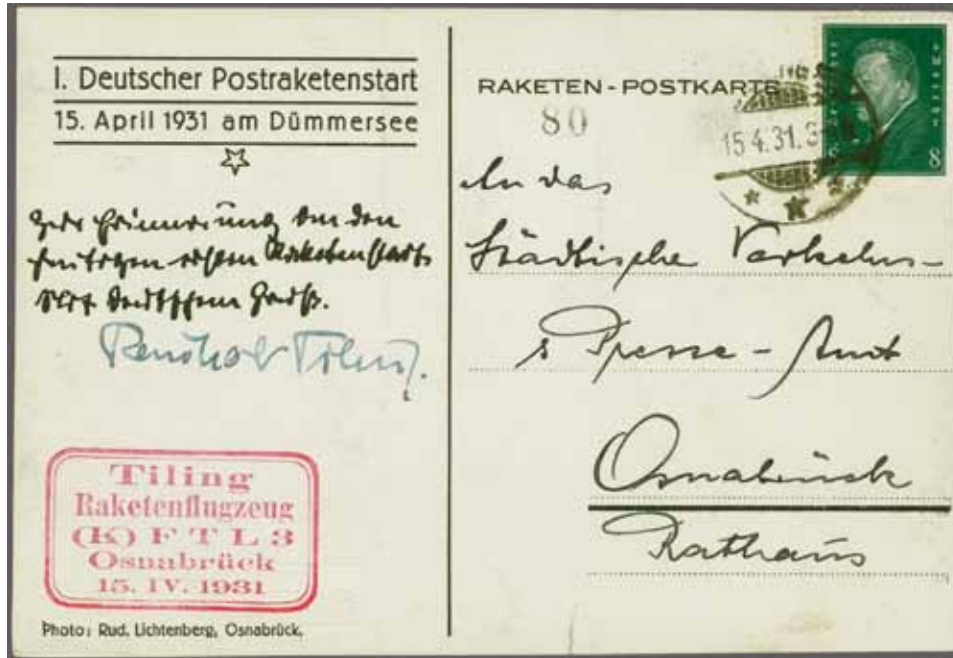 I. Deutscher Postraketenstart
15. April 1931 am Dümmersee
Zur Erinnerung an den
heutigen ersten Raketenstart.
Mit Deutschem Gruß.
Reinhold Tiling.
Tiling
Raketenflugzeug
(K) F T L 3
Osnabrück
15. IV. 1931
Photo: Rud. Lichtenberg, Osnabrück.
RAKETEN-POSTKARTE
80
15.4.31.
8
An das
Städtische Verkehrs-
Presse-Amt
Osnabrück
Rathaus